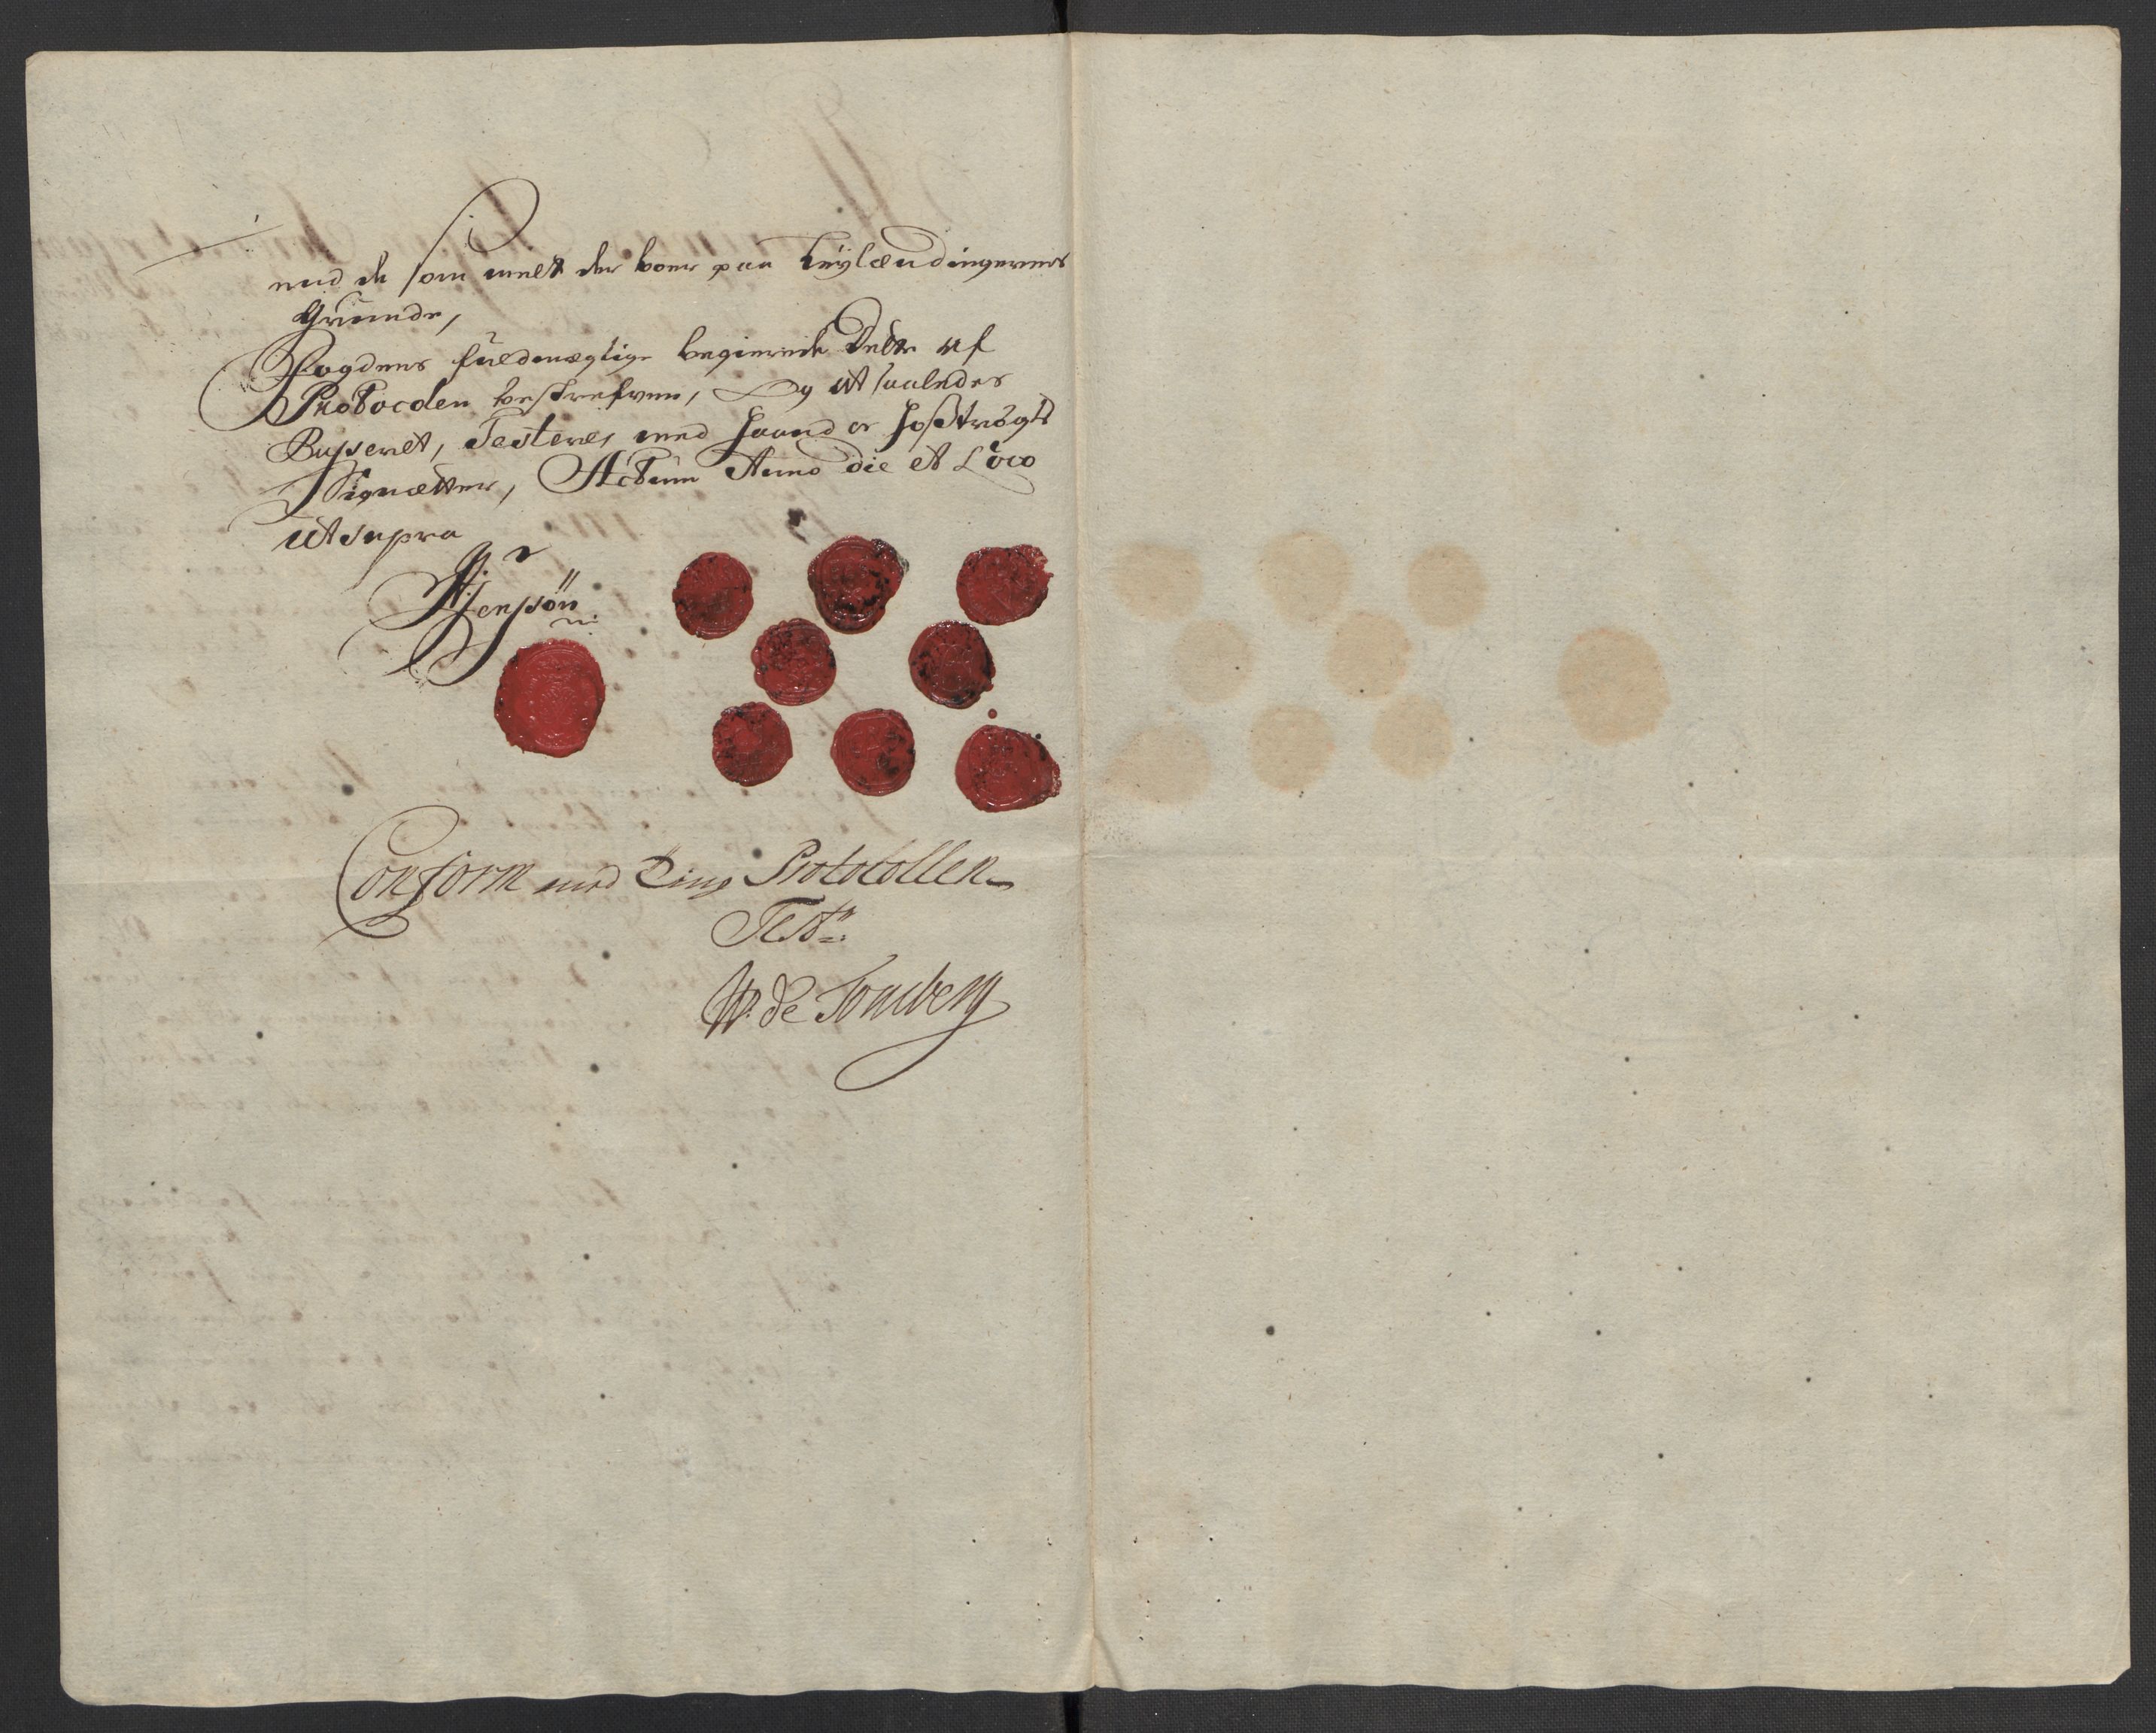 med de som melt der boer paa Leylændingernes
Grunde,
Fogdens fuldmægtige begierede Dette af
Protocolen beskrefven, Og at saaledes
Passeret, Testeres med haand og hoströgte
Signetter, Actum Anno die et Loco
ut supra
Jensön
Conform med Ting Protocollen
Test:
W: de Tonsberg